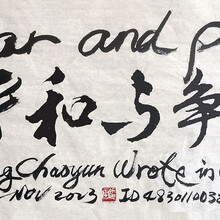 ar and p
平和与争
g Chaoyun Wrote in
Nov 2023 ID 4830110032